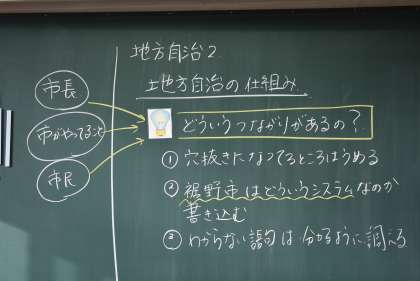 地方自治2
地方自治の仕組み
市長
市がやってること
市民
どういうつながりがあるの?
① 穴抜きになってるところはうめる
② 裾野市はどういうシステムなのか
書き込む
③ わからない語句は分かるように調べる